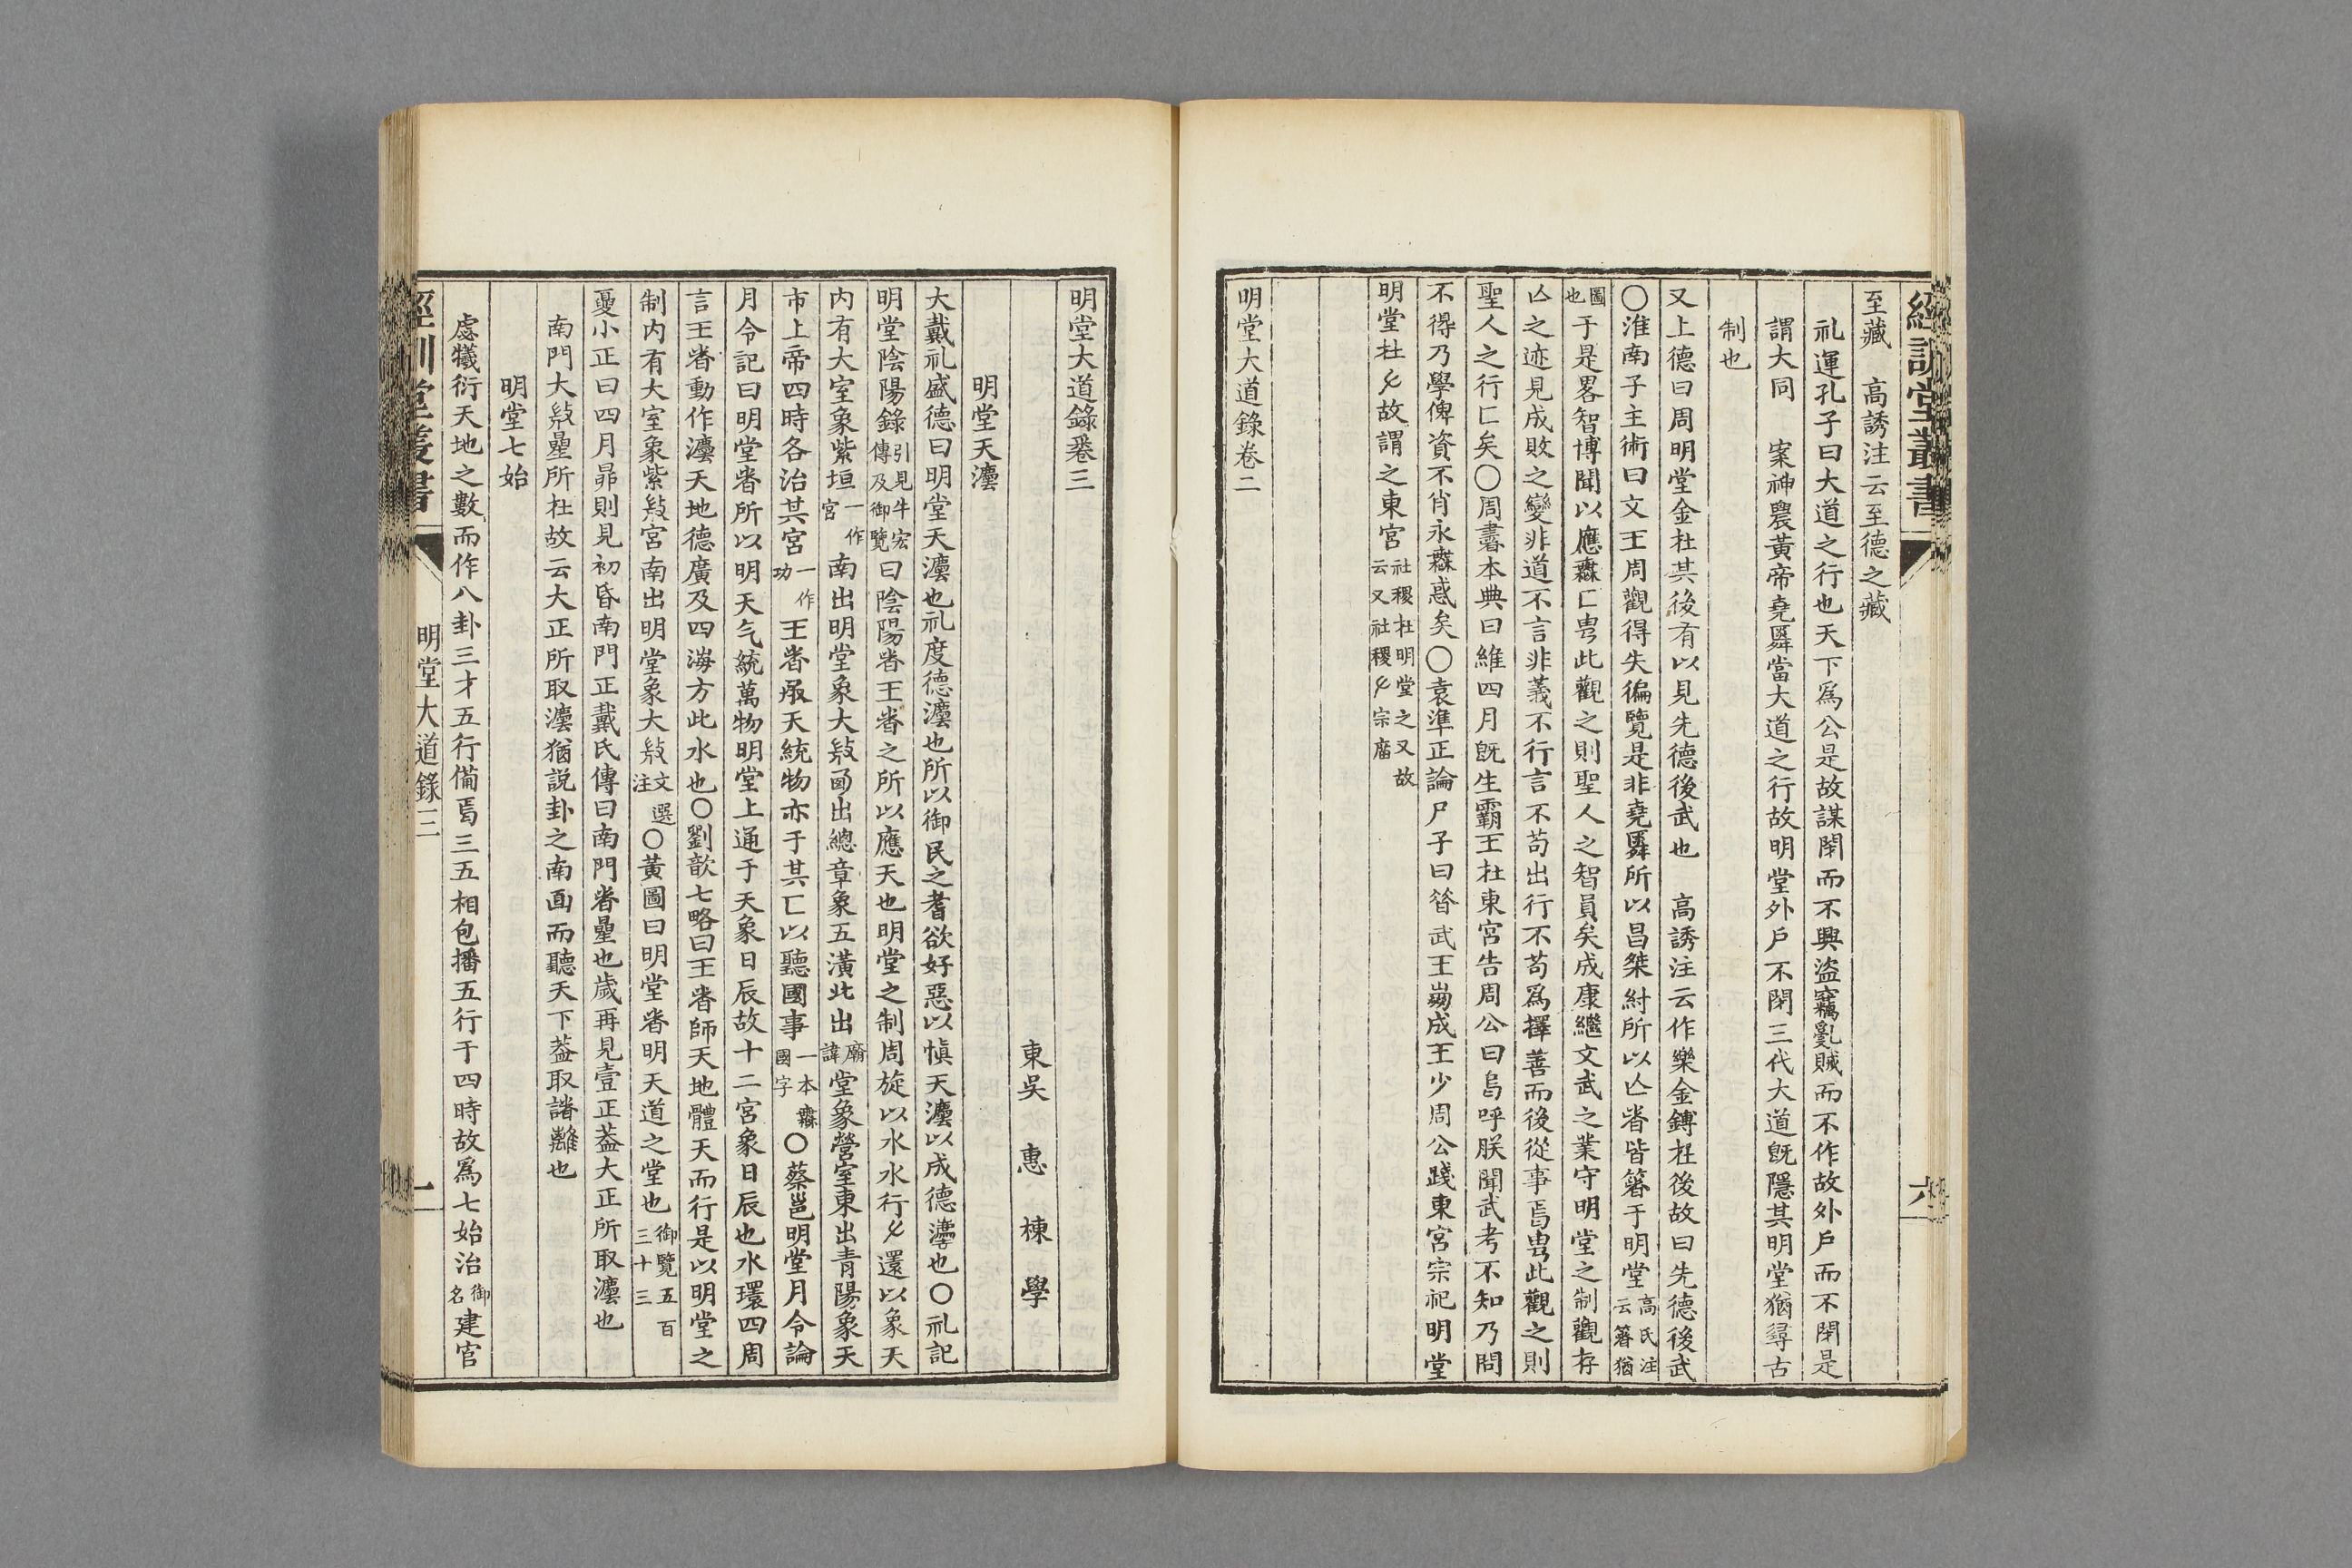 經訓堂叢書
六
至藏　高誘注云至德之藏
礼運孔子曰大道之行也天下爲公是故謀閉而不興盜竊亂賊而不作故外戶而不閉是
謂大同　案神農黃帝堯舜當大道之行故明堂外戶不閉三代大道旣隱其明堂猶尋古
制也
又上德曰周明堂金在其後有以見先德後武也　高誘注云作樂金鎛在後故曰先德後武
○淮南子主術曰文王周觀得失徧覽是非堯舜所以昌桀紂所以亾者皆箸于明堂高氏注云箸猶
圖也于是畧智博聞以應無匚㫄此觀之則聖人之智員矣成康繼文武之業守明堂之制觀存
亾之迹見成敗之變非道不言非義不行言不苟出行不苟爲擇善而後從事焉㫄此觀之則
聖人之行匚矣○周書本典曰維四月旣生霸王在東宮告周公曰烏呼朕聞武考不知乃問
不得乃學俾資不肖永無惑矣○袁準正論尸子曰昝武王崩成王少周公踐東宮宗祀明堂
明堂在𠂇故謂之東宮社稷在明堂之又故云又社稷𠂇宗廟
明堂大道錄卷二
明堂大道錄卷三
東吳　惠　棟　學
明堂天灋
大戴礼盛德曰明堂天灋也礼度德灋也所以御民之耆欲好惡以愼天灋以成德灋也○礼記
明堂陰陽錄引見牛宏傳及御覽曰陰陽者王者之所以應天也明堂之制周旋以水水行𠂇還以象天
内有大室象紫垣一作宮南出明堂象大敍𠧧出總章象五潢北出廟諱堂象營室東出青陽象天
市上帝四時各治其宮一作功王者承天統物亦于其匚以聽國事一本無國字○蔡邕明堂月令論
月令記曰明堂者所以明天气統萬物明堂上通于天象日辰故十二宮象日辰也水環四周
言王者動作灋天地德廣及四海方此水也○劉歆七略曰王者師天地體天而行是以明堂之
制内有大室象紫敍宮南出明堂象大敍文選注○黃圖曰明堂者明天道之堂也御覽五百三十三
夏小正曰四月昴則見初昏南門正戴氏傳曰南門者曐也歲再見壹正葢大正所取灋也
南門大敍曐所在故云大正所取灋猶說卦之南面而聽天下葢取諸離也
明堂七始
虙犧衍天地之數而作八卦三才五行備焉三五相包播五行于四時故爲七始治御名建官
經訓堂叢書
明堂大道錄三
一